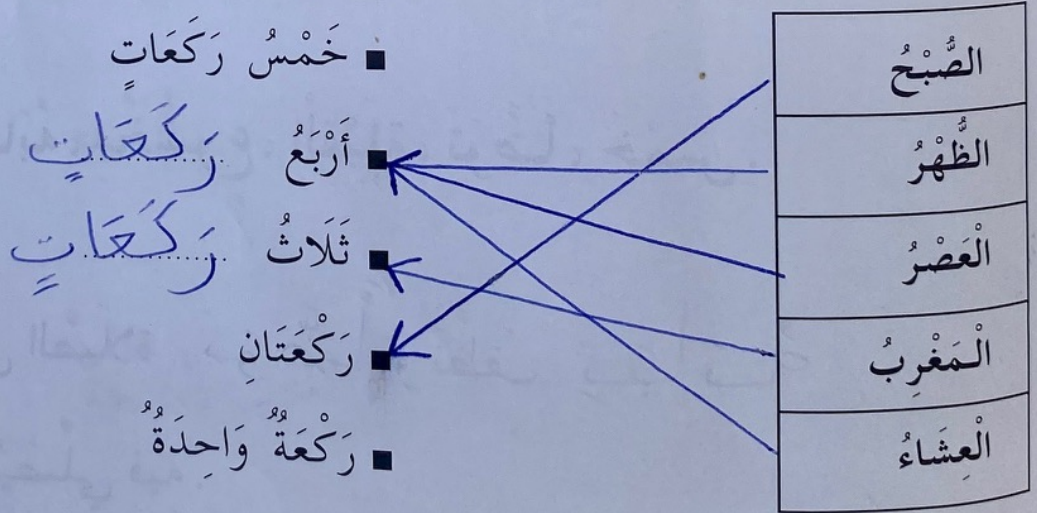 الصُّبْحُ
الظُّهْرُ
الْعَصْرُ
الْمَغْرِبُ
الْعِشَاءُ
خَمْسُ رَكَعَاتٍ
أَرْبَعُ رَكَعَاتٍ
ثَلَاثُ رَكَعَاتٍ
رَكْعَتَانِ
رَكْعَةٌ وَاحِدَةٌ